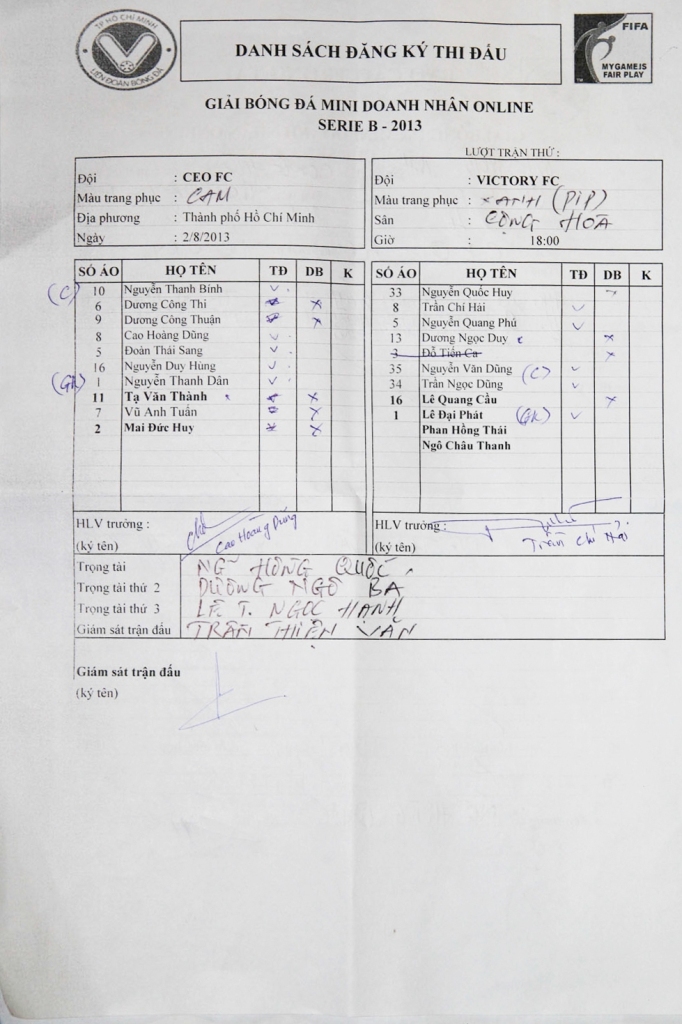 TP HỒ CHÍ MINH
LIÊN ĐOÀN BÓNG ĐÁ
DANH SÁCH ĐĂNG KÝ THI ĐẤU
FIFA
MY GAME IS
FAIR PLAY
GIẢI BÓNG ĐÁ MINI DOANH NHÂN ONLINE
SERIE B - 2013
LƯỢT TRẬN THỨ :
Đội : CEO FC
Màu trang phục : CAM
Địa phương : Thành phố Hồ Chí Minh
Ngày : 2/8/2013
Đội : VICTORY FC
Màu trang phục : XANH (PIP)
Sân : CỘNG HOÀ
Giờ : 18:00
SỐ ÁO HỌ TÊN TĐ DB K
(C) 10 Nguyễn Thanh Bính
6 Dương Công Thi
9 Dương Công Thuận
8 Cao Hoàng Dũng
5 Đoàn Thái Sang
16 Nguyễn Duy Hùng
(GK) 1 Nguyễn Thanh Dân
11 Tạ Văn Thành
7 Vũ Anh Tuấn
2 Mai Đức Huy
SỐ ÁO HỌ TÊN TĐ DB K
33 Nguyễn Quốc Huy
8 Trần Chí Hải
5 Nguyễn Quang Phú
13 Dương Ngọc Duy
3 Đỗ Tiến Ca
35 Nguyễn Văn Dũng (C)
34 Trần Ngọc Dũng
16 Lê Quang Cầu
1 Lê Đại Phát (GK)
Phan Hồng Thái
Ngô Châu Thanh
HLV trưởng :
(ký tên) Cao Hoàng Dũng
HLV trưởng :
(ký tên) Trần Chí Hải
Trọng tài HỒNG QUỐC
Trọng tài thứ 2 DƯƠNG NGÔ BA
Trọng tài thứ 3 LÊ T. NGỌC HẠNH
Giám sát trận đấu TRẦN THIÊN VẠN
Giám sát trận đấu
(ký tên)